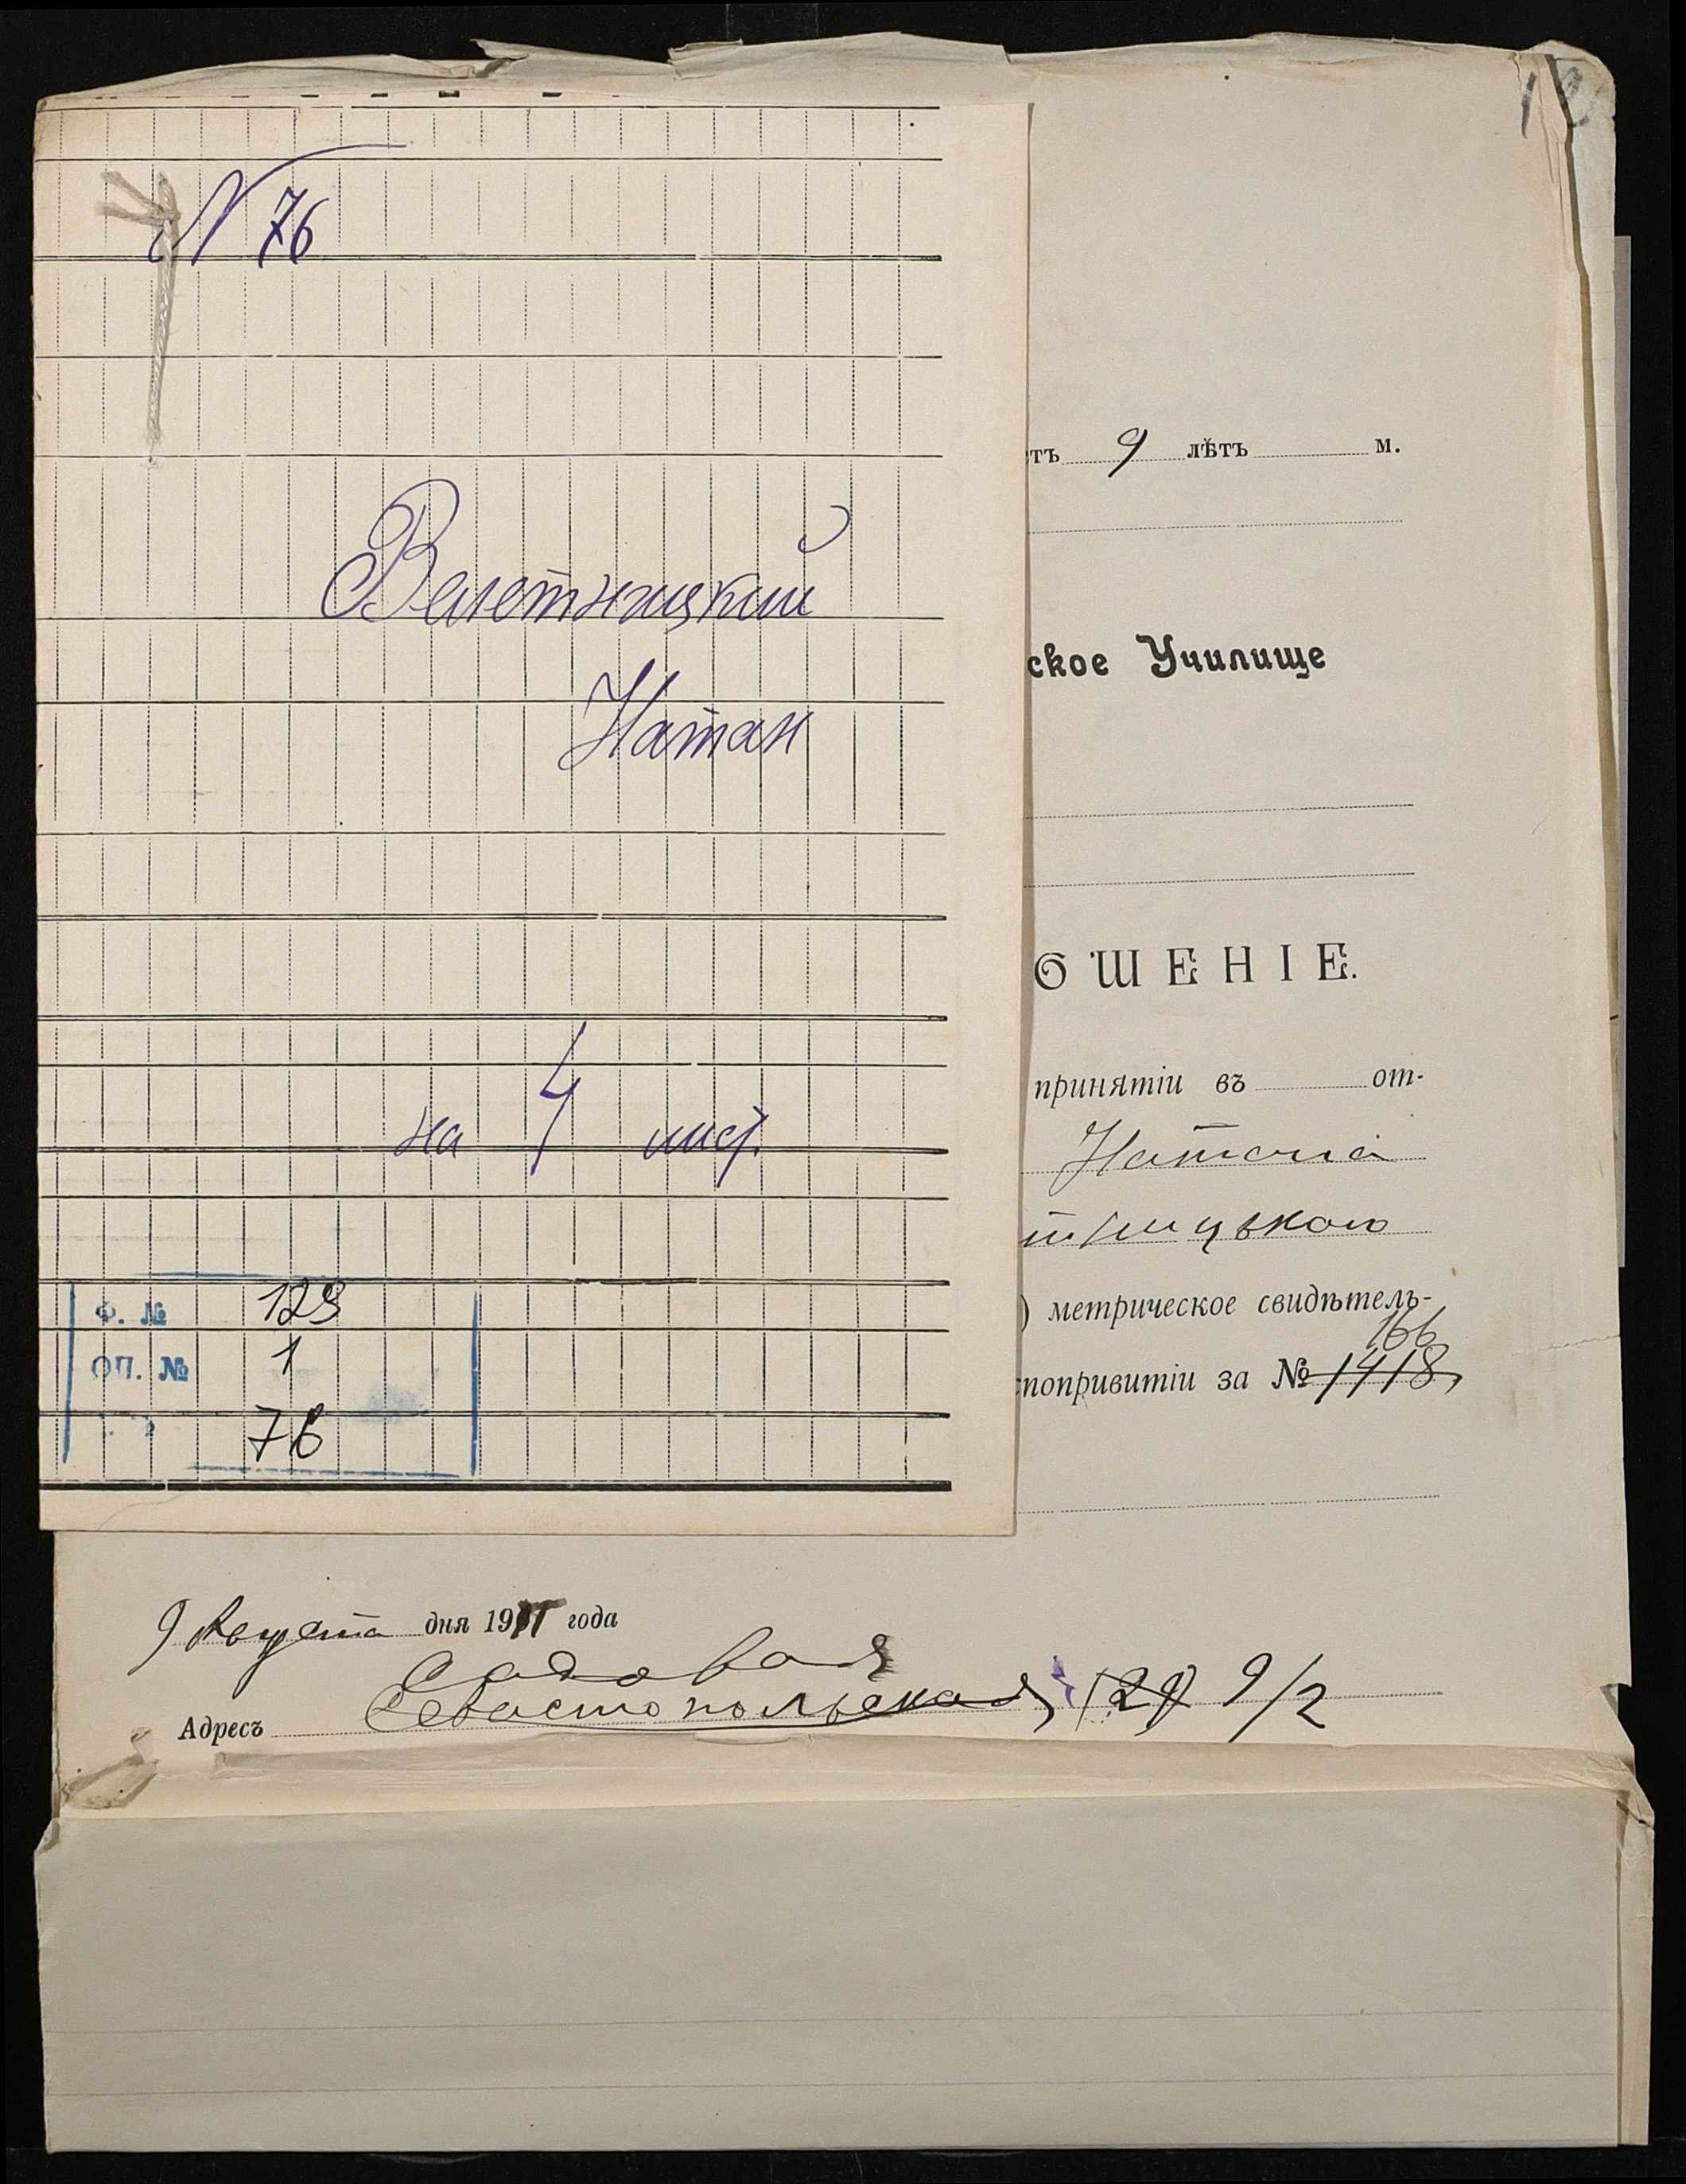 12
N 76
Велетницкий
Натан
на 4 лист.
Ф. № 129
ОП. № 1
76
тъ 9 лѣтъ м.
ское Училище
ОШЕНІЕ.
принятіи въ от-
Натана
тницкого
) метрическое свидѣтель-
166
спопривитіи за № 1418,
9 Августа дня 1911 года
Садовая
Адресъ Севастопольская, 29 9/2